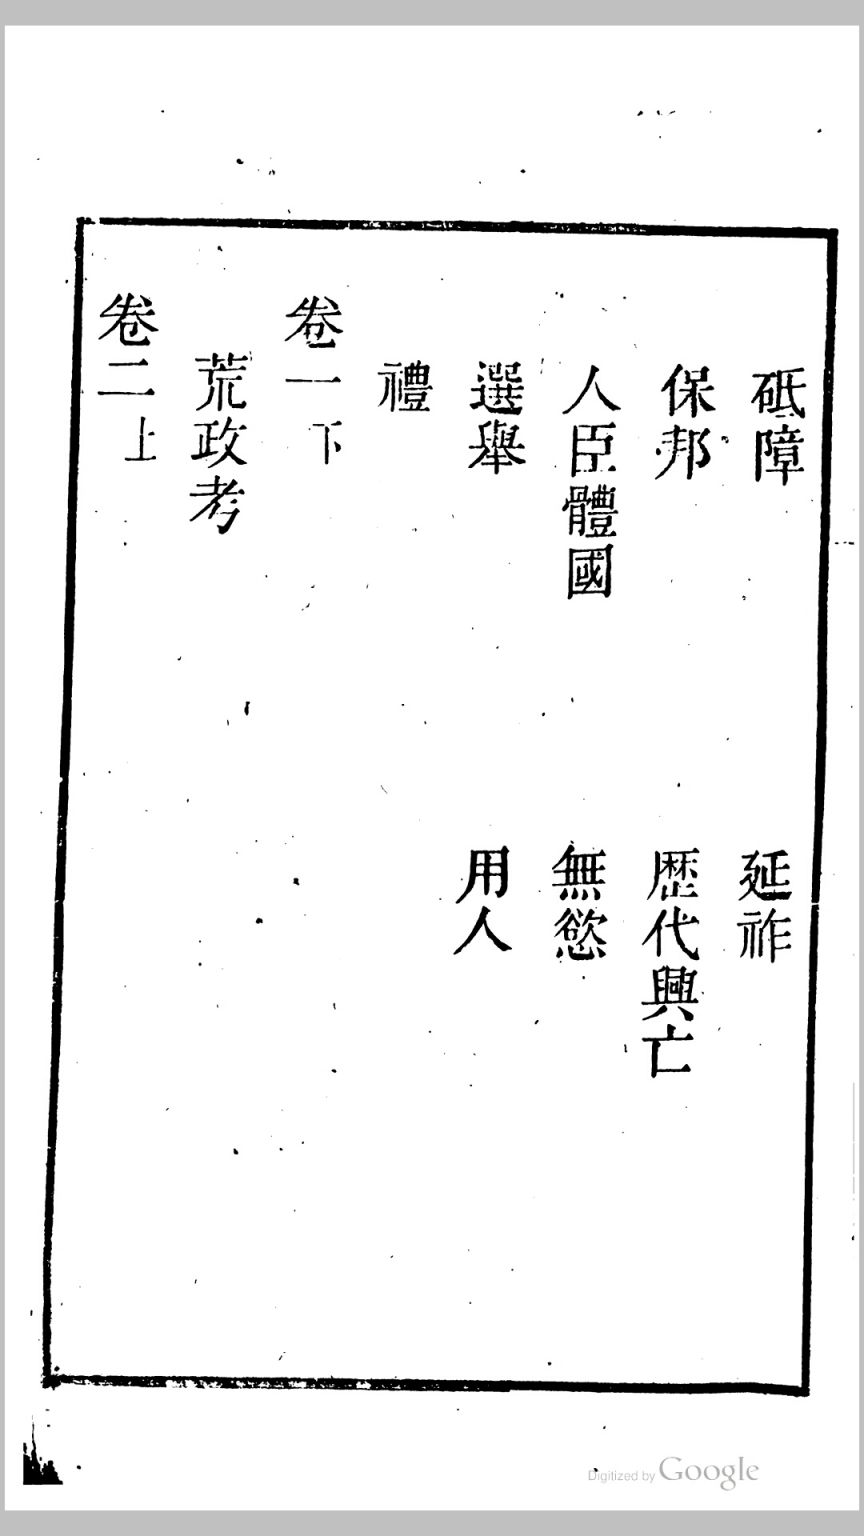 砥障　延祚
保邦　歷代興亡
人臣體國　無慾
選舉　用人
禮
卷一下
荒政考
卷二上
Digitized by Google